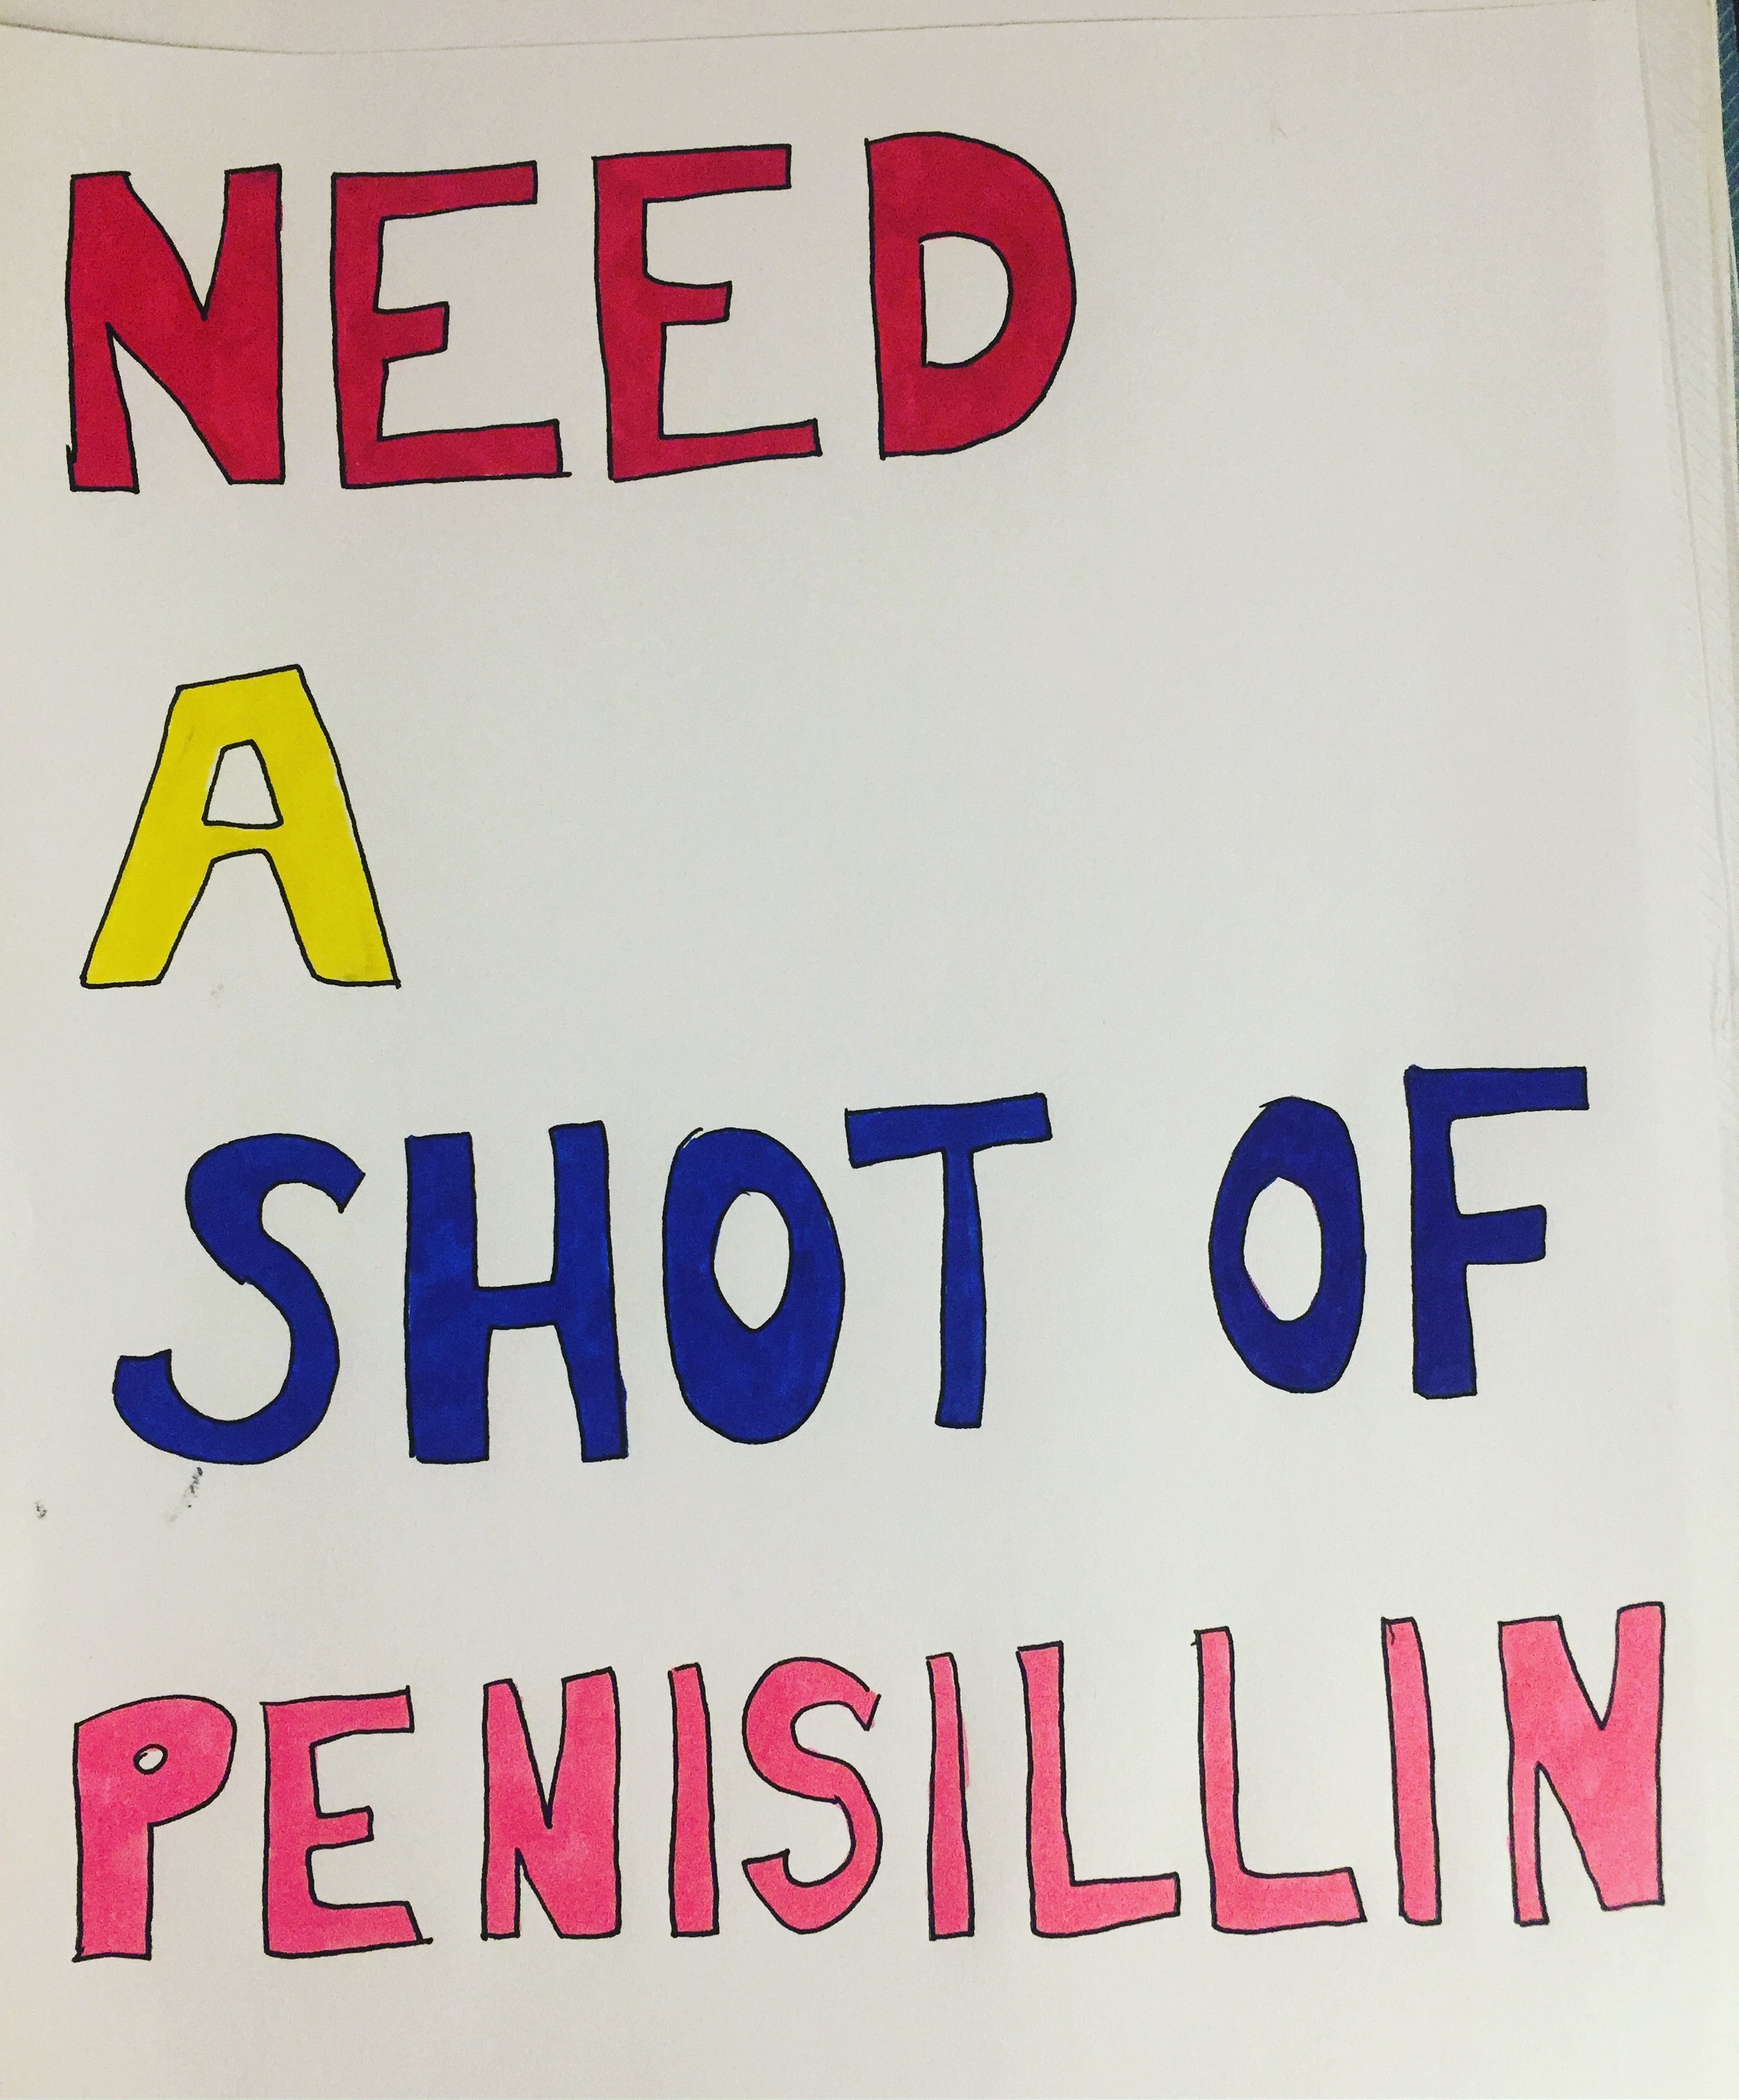 NEED
A
SHOT OF
PENISILLIN